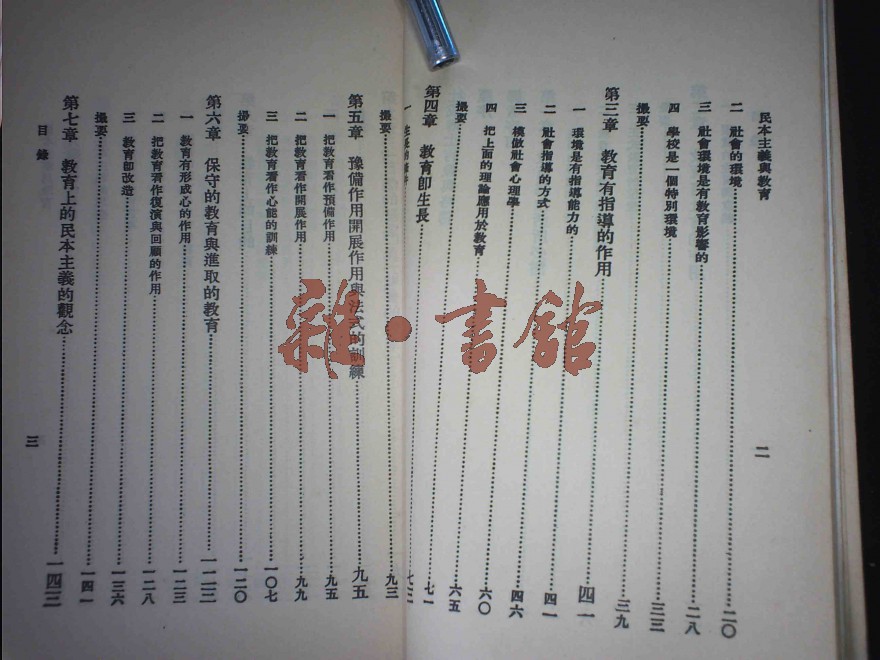 民本主義與教育
二
二 社會的環境 二〇
三 社會環境是有教育影響的 二八
四 學校是一個特別環境 三三
撮要 三九
第三章 教育有指導的作用 四一
一 環境是有指導能力的
二 社會指導的方式 四一
三 模倣社會心理學 四六
四 把上面的理論應用於教育 六〇
撮要 六五
第四章 教育即生長 七一
一
撮要 九三
第五章 豫備作用開展作用與法式的訓練 九五
一 把教育看作預備作用 九五
二 把教育看作開展作用 九九
三 把教育看作心能的訓練 一〇七
撮要 一二〇
第六章 保守的教育與進取的教育 一二三
一 教育有形成心的作用 一二三
二 把教育看作復演與回顧的作用 一二八
三 教育即改造 一三六
撮要 一四一
第七章 教育上的民本主義的觀念 一四三
目錄
三
雜·書館